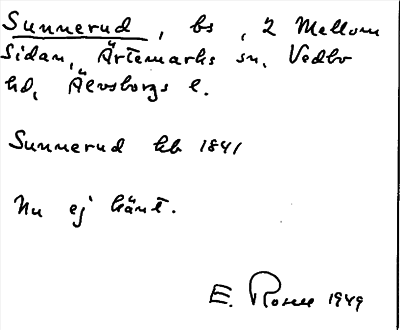 Sunnerud, bs, 2 Mellom
Sidan, Ärtemarks sn, Vedbo
hd, Älvsborgs l.
Sunnerud hb 1841
Nu ej känt.
E. Rosen 1949